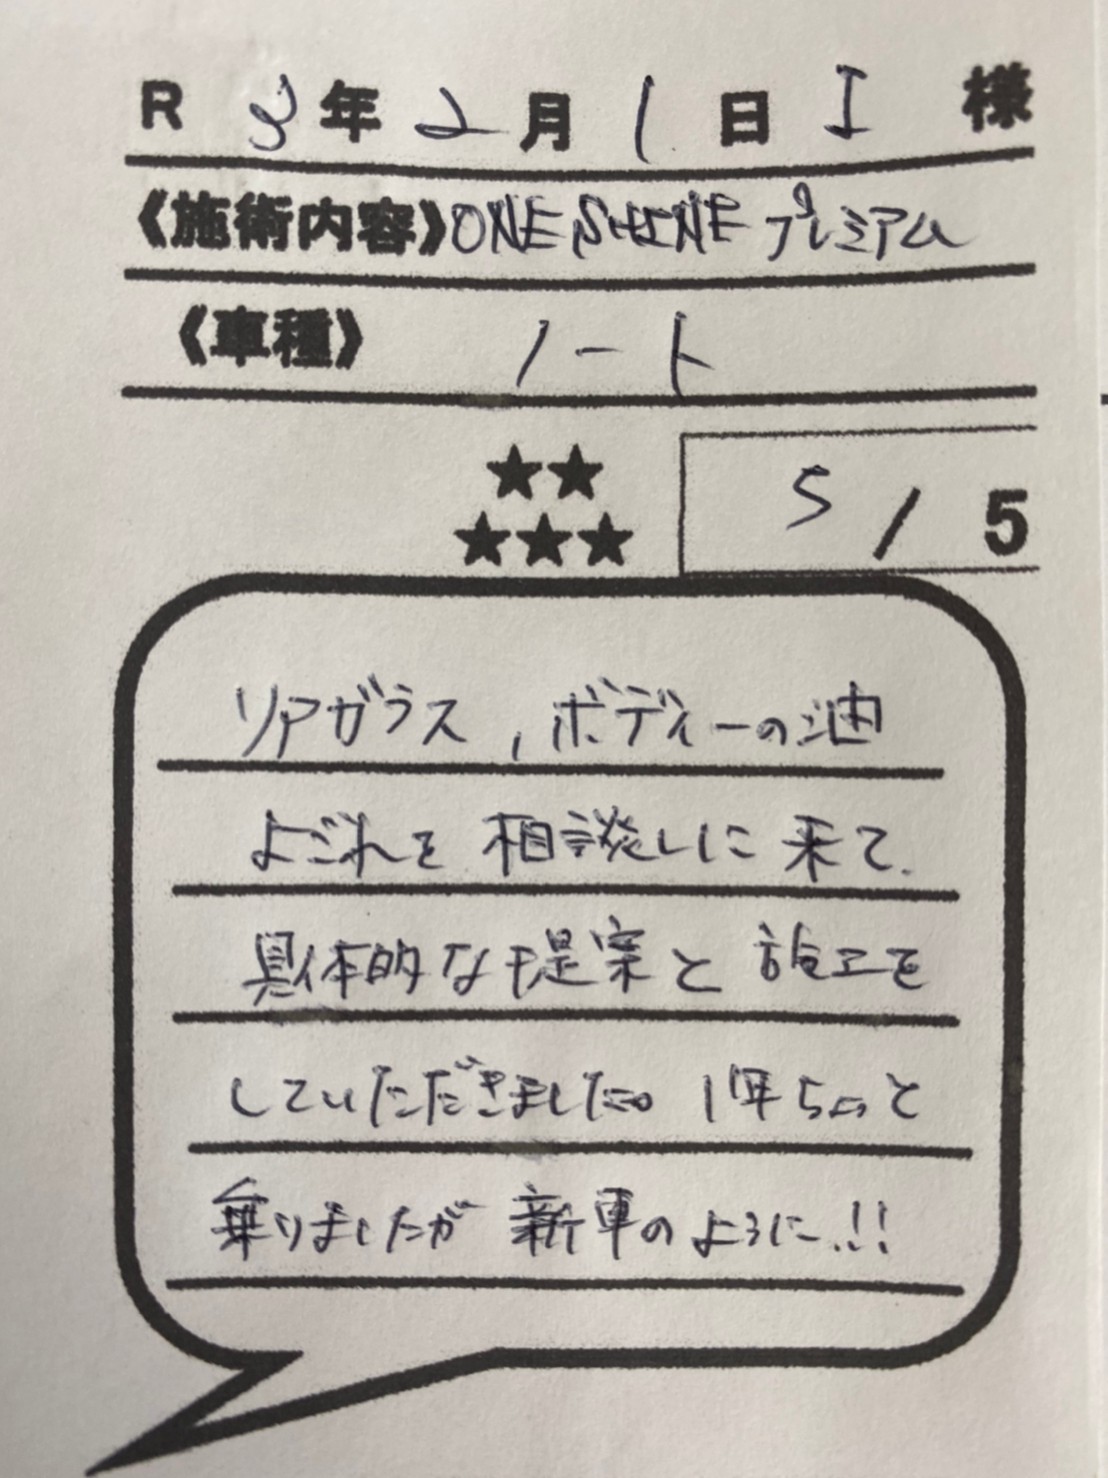 R 3年2月1日 I 様
《施術内容》ONE SHINE プレミアム
《車種》 ノート
★★
★★★
5 / 5
リアガラス、ボディーの油
よごれを 相談しに 来て、
具体的な提案と 施工を
していただきました。 1年ちょっと
乗りましたが 新車のように!!